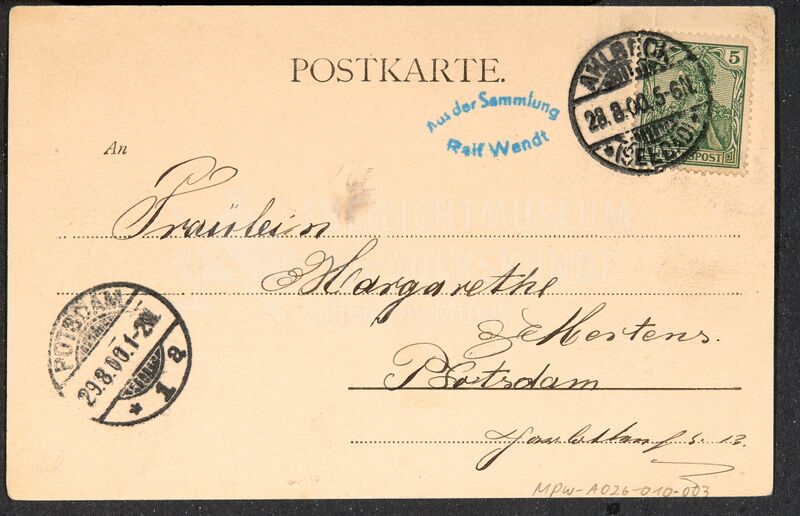 POSTKARTE.
Aus der Sammlung
Ralf Wendt
AHLBECK
28.8.00. 5-6N.
* (SEEBAD) *
5
POST
An
Fräulein
Margarethe
Mertens.
Potsdam
13.
POTSDAM
29.8.00. 1-2N.
* 1 a
FREILICHTMUSEUM
VOLKSKUNDE
MPW-A026-010-003